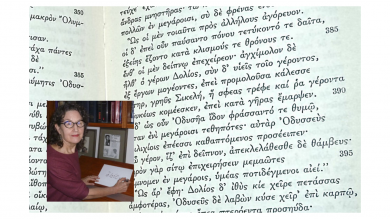 μακρὸν Ὄλυμ-
350
τάχα πάντες
Ὀδυσ-
355
ἄνδρας μνηστῆρας·
πολλῶν ἐν μεγάροισι, σὺ δὲ φρένας
Ὣς οἱ μὲν τοιαῦτα πρὸς ἀλλήλους ἀγόρευον.
οἱ δ' ἐπεὶ οὖν παύσαντο πόνου τετύκοντό τε δαῖτα, 385
ἑξείης ἕζοντο κατὰ κλισμούς τε θρόνους τε.
ἔνθ' οἱ μὲν δείπνῳ ἐπεχείρεον· ἀγχίμολον δὲ
ἦλθ' ὁ γέρων Δολίος, σὺν δ' υἱεῖς τοῖο γέροντος,
ἐξ ἔργων μογέοντες, ἐπεὶ προμολοῦσα κάλεσσε
μήτηρ, γρηῢς Σικελή, ἥ σφεας τρέφε καί ῥα γέροντα 390
ἐνδυκέως κομέεσκεν, ἐπεὶ κατὰ γῆρας ἔμαρψεν.
οἱ δ' ὡς οὖν Ὀδυσῆα ἴδον φράσσαντό τε θυμῷ,
ἐνὶ μεγάροισι τεθηπότες· αὐτὰρ Ὀδυσσεὺς
ἐπέεσσι καθαπτόμενος προσέειπεν·
γέρον, ἵζ' ἐπὶ δεῖπνον, ἀπεκλελάθεσθε δὲ θάμβευς·
γὰρ σίτῳ ἐπιχειρήσειν μεμαῶτες 395
ἐν μεγάροις, ὑμέας ποτιδέγμενοι αἰεί.
Ὣς ἄρ' ἔφη, Δολίος δ' ἰθὺς κίε χεῖρε πετάσσας
ἀμφοτέρας, Ὀδυσεῦς δὲ λαβὼν κύσε χεῖρ' ἐπὶ καρπῷ,
πτερόεντα προσηύδα·